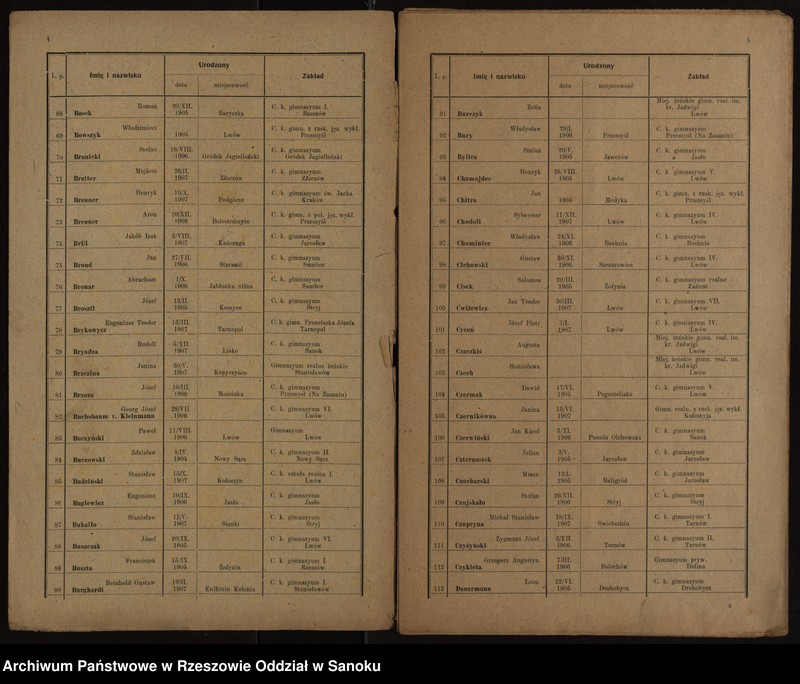 4
L. p.
Imię i nazwisko
Urodzony
data
miejscowość
Zakład
68 Roman Bosek 20/XII. 1905 Baryczka C. k. gimnazyum I. Rzeszów
69 Włodzimierz Bowszyk 1905 Lwów C. k. gimn. z rusk. jęz. wykł. Przemyśl
70 Stefan Branicki 16/VIII. 1906 Gródek Jagielloński C. k. gimnazyum Gródek Jagielloński
71 Mojżesz Bratter 1907 Złoczów C. k. gimnazyum Złoczów
72 Henryk Brenner 10/X. 1907 Podgórze C. k. gimnazyum św. Jacka Kraków
73 Aron Brenner 20/XII. C. k. gimn. z pol. jęz. wykł. Przemyśl
74 Jakób Izak Brill 3/VIII. 1907 Kańczuga C. k. gimnazyum Jarosław
75 Jan Brond 27/VII. 1906 Starasól C. k. gimnazyum Sambor
76 Abracham Bronar 1/X. 1906 Jabłonka niżna C. k. gimnazyum Sambor
77 Józef Broszil 13/II. 1905 C. k. gimnazyum Stryj
78 Eugeniusz Teodor Brykowycz 13/III. 1907 Tarnopol C. k. gimn. Franciszka Józefa Tarnopol
79 Rudolf Bryndza 5/XII. 1907 Lisko C. k. gimnazyum Sanok
80 Janina Brzezina 30/V. 1907 Kopyczyńce Gimnazyum realne żeńskie Stanisławów
81 Józef Brzoza 10/III. 1906 Mościska C. k. gimnazyum Przemyśl (Na Zasaniu)
82 Georg Józef Buchsbaum v. Kleinmann 28/VII. 1906 C. k. gimnazyum VI. Lwów
83 Paweł Buczyński 11/VIII. 1906 Lwów Gimnazyum Lwów
84 Zdzisław Buczowski 4/IV. 1904 Nowy Sącz C. k. gimnazyum II. Nowy Sącz
85 Stanisław Budziński 15/X. 1907 Kołoszyn C. k. szkoła realna I. Lwów
86 Eugeniusz Buglewicz 10/IX. 1906 Jasło C. k. gimnazyum Jasło
87 Stanisław Bukałło 1907 Sianki C. k. gimnazyum Stryj
88 Józef Buszczak 20/IX. 1905 C. k. gimnazyum VI. Lwów
89 Franciszek Buszta 15/IX. 1905 Żołynia C. k. gimnazyum I. Rzeszów
90 Reinhold Gustaw Burghardt 19/II. 1907 Knihinin Kolonia C. k. gimnazyum I. Stanisławów
5
L. p.
Imię i nazwisko
Urodzony
data
miejscowość
Zakład
91 Zofia Burczyk Miej. żeńskie gimn. real. im. kr. Jadwigi Lwów
92 Władysław Bury 29/I. 1906 Przemyśl C. k. gimnazyum Przemyśl (Na Zasaniu)
93 Stefan Bylica 20/V. 1905 Jaworów C. k. gimnazyum Jasło
94 Henryk Chamajdes 26/VIII. 1905 Lwów C. k. gimnazyum V. Lwów
95 Jan Chitra 1905 Medyka C. k. gimn. z rusk. jęz. wykł. Przemyśl
96 Sylwester Chodoli 11/XII. 1907 Lwów C. k. gimnazyum IV. Lwów
97 Władysław Chominiec 24/XI. 1906 Bochnia C. k. gimnazyum Bochnia
98 Gustaw Cichowski 30/XI. 1906 Szczurowice C. k. gimnazyum IV. Lwów
99 Salomon Cisek 29/III. 1905 Żołynia C. k. gimnazyum realne Łańcut
100 Jan Teodor Ćwiżewicz 30/III. 1907 Lwów C. k. gimnazyum VII. Lwów
101 Józef Piotr Cyroń 1/I. 1907 Lwów C. k. gimnazyum IV. Lwów
102 Augusta Czaczkis Miej. żeńskie gimn. real. im. kr. Jadwigi Lwów
103 Stanisława Czech Miej. żeńskie gimn. real. im. kr. Jadwigi Lwów
104 Dawid Czermak 17/VI. 1905 Pogorzelisko C. k. gimnazyum V. Lwów
105 Janina Czernikówna 15/VI. 1907 Gimn. realn. z rusk. jęz. wykł. Kołomyja
106 Jan Karol Czerwiński 3/XI. 1906 Posada Olchowska C. k. gimnazyum Sanok
107 Julian Czternastek 3/V. 1905 Jarosław C. k. gimnazyum Jarosław
108 Mison Czucharski 12/I. 1905 Baligród C. k. gimnazyum Jarosław
109 Stefan Czujskało 26/XII. 1906 Stryj C. k. gimnazyum Stryj
110 Michał Stanisław Czupryna 18/IX. 1907 Świebodzin C. k. gimnazyum I. Tarnów
111 Zygmunt Józef Czyżyński 2/XII. 1906 Tarnów C. k. gimnazyum II. Tarnów
112 Grzegorz Augustyn Czykleta 7/III. 1906 Bolechów Gimnazyum pryw. Dolina
113 Leon Dauermann 22/VI. 1905 Drohobycz C. k. gimnazyum Drohobycz
2
Archiwum Państwowe w Rzeszowie Oddział w Sanoku